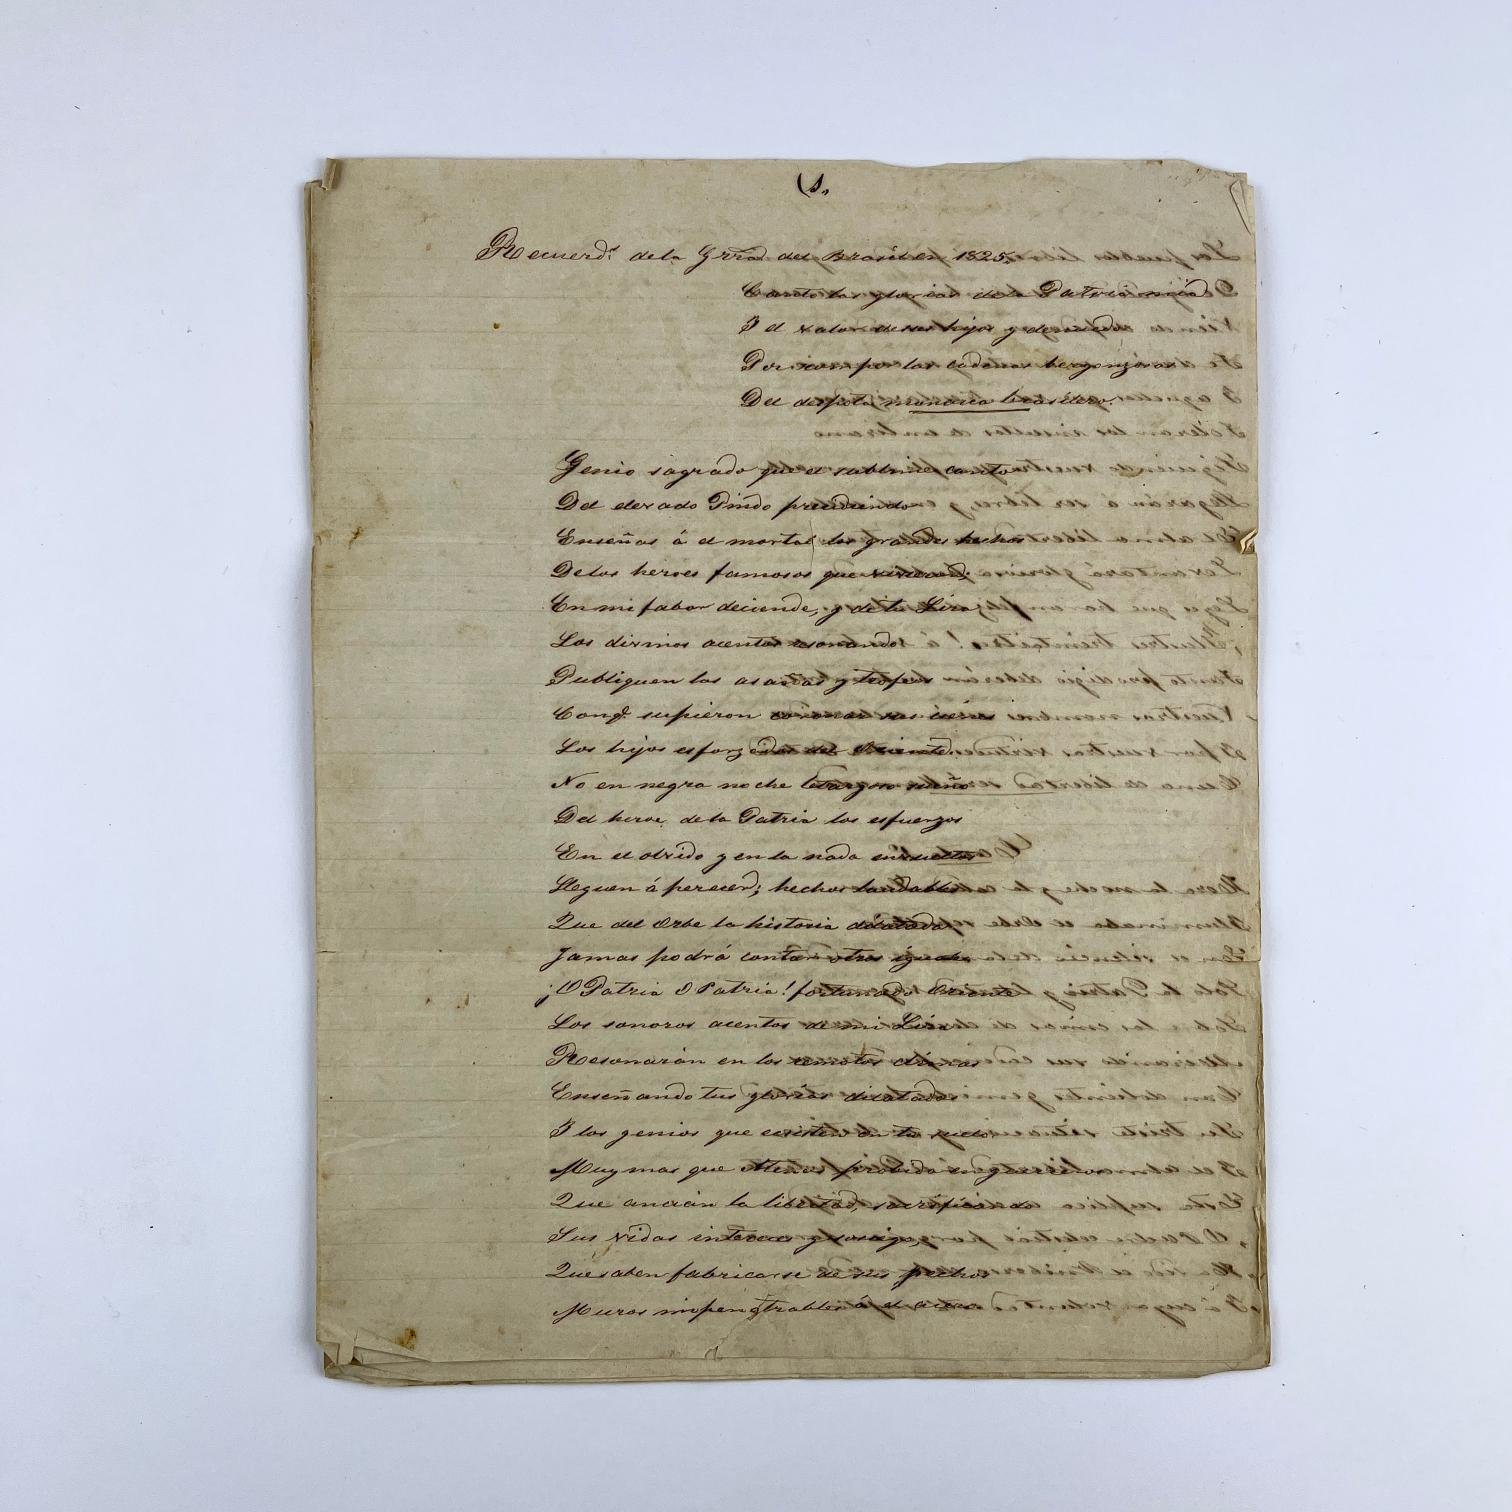 (1.,
Recuerd.s de la Grra del Brasil en 1825.
Canto las glorias de la Patria mia
I el valor de sus hijos y denuedo
Por romper las cadenas bergonzosas
Del despota monarca brasilero.
Genio sagrado que el sublime canto
Del elevado Pindo presidiendo
Enseñas á el mortal los grandes hechos
De los heroes famosos que vivieron.
En mi fabor deciende, y de tu Lira
Los divinos acentos resonando
Publiquen las asañas y trofeos
Conq.e supieron coronar sus cienes
Los hijos esforzados del Oriente.
No en negra noche letargoso sueño
Del heroe de la Patria los esfuerzos
En el olvido y en la nada envueltos
Lleguen á perecer; hechos laudables
Que del Orbe la historia dilatada
Jamas podrá contar otros iguales
¡O Patria O Patria! fortunado Oriente
Los sonoros acentos de mi Lira
Resonarán en los remotos climas
Enseñando tus glorias dilatadas
I los genios que ecsisten en tu suelo
Muy mas que Atenas probido en guerreros
Que ancian la libertad, sacrificando
Sus vidas intereses y sosiego,
Que saben fabricarse de sus pechos
Muros inpenetrables á el acero